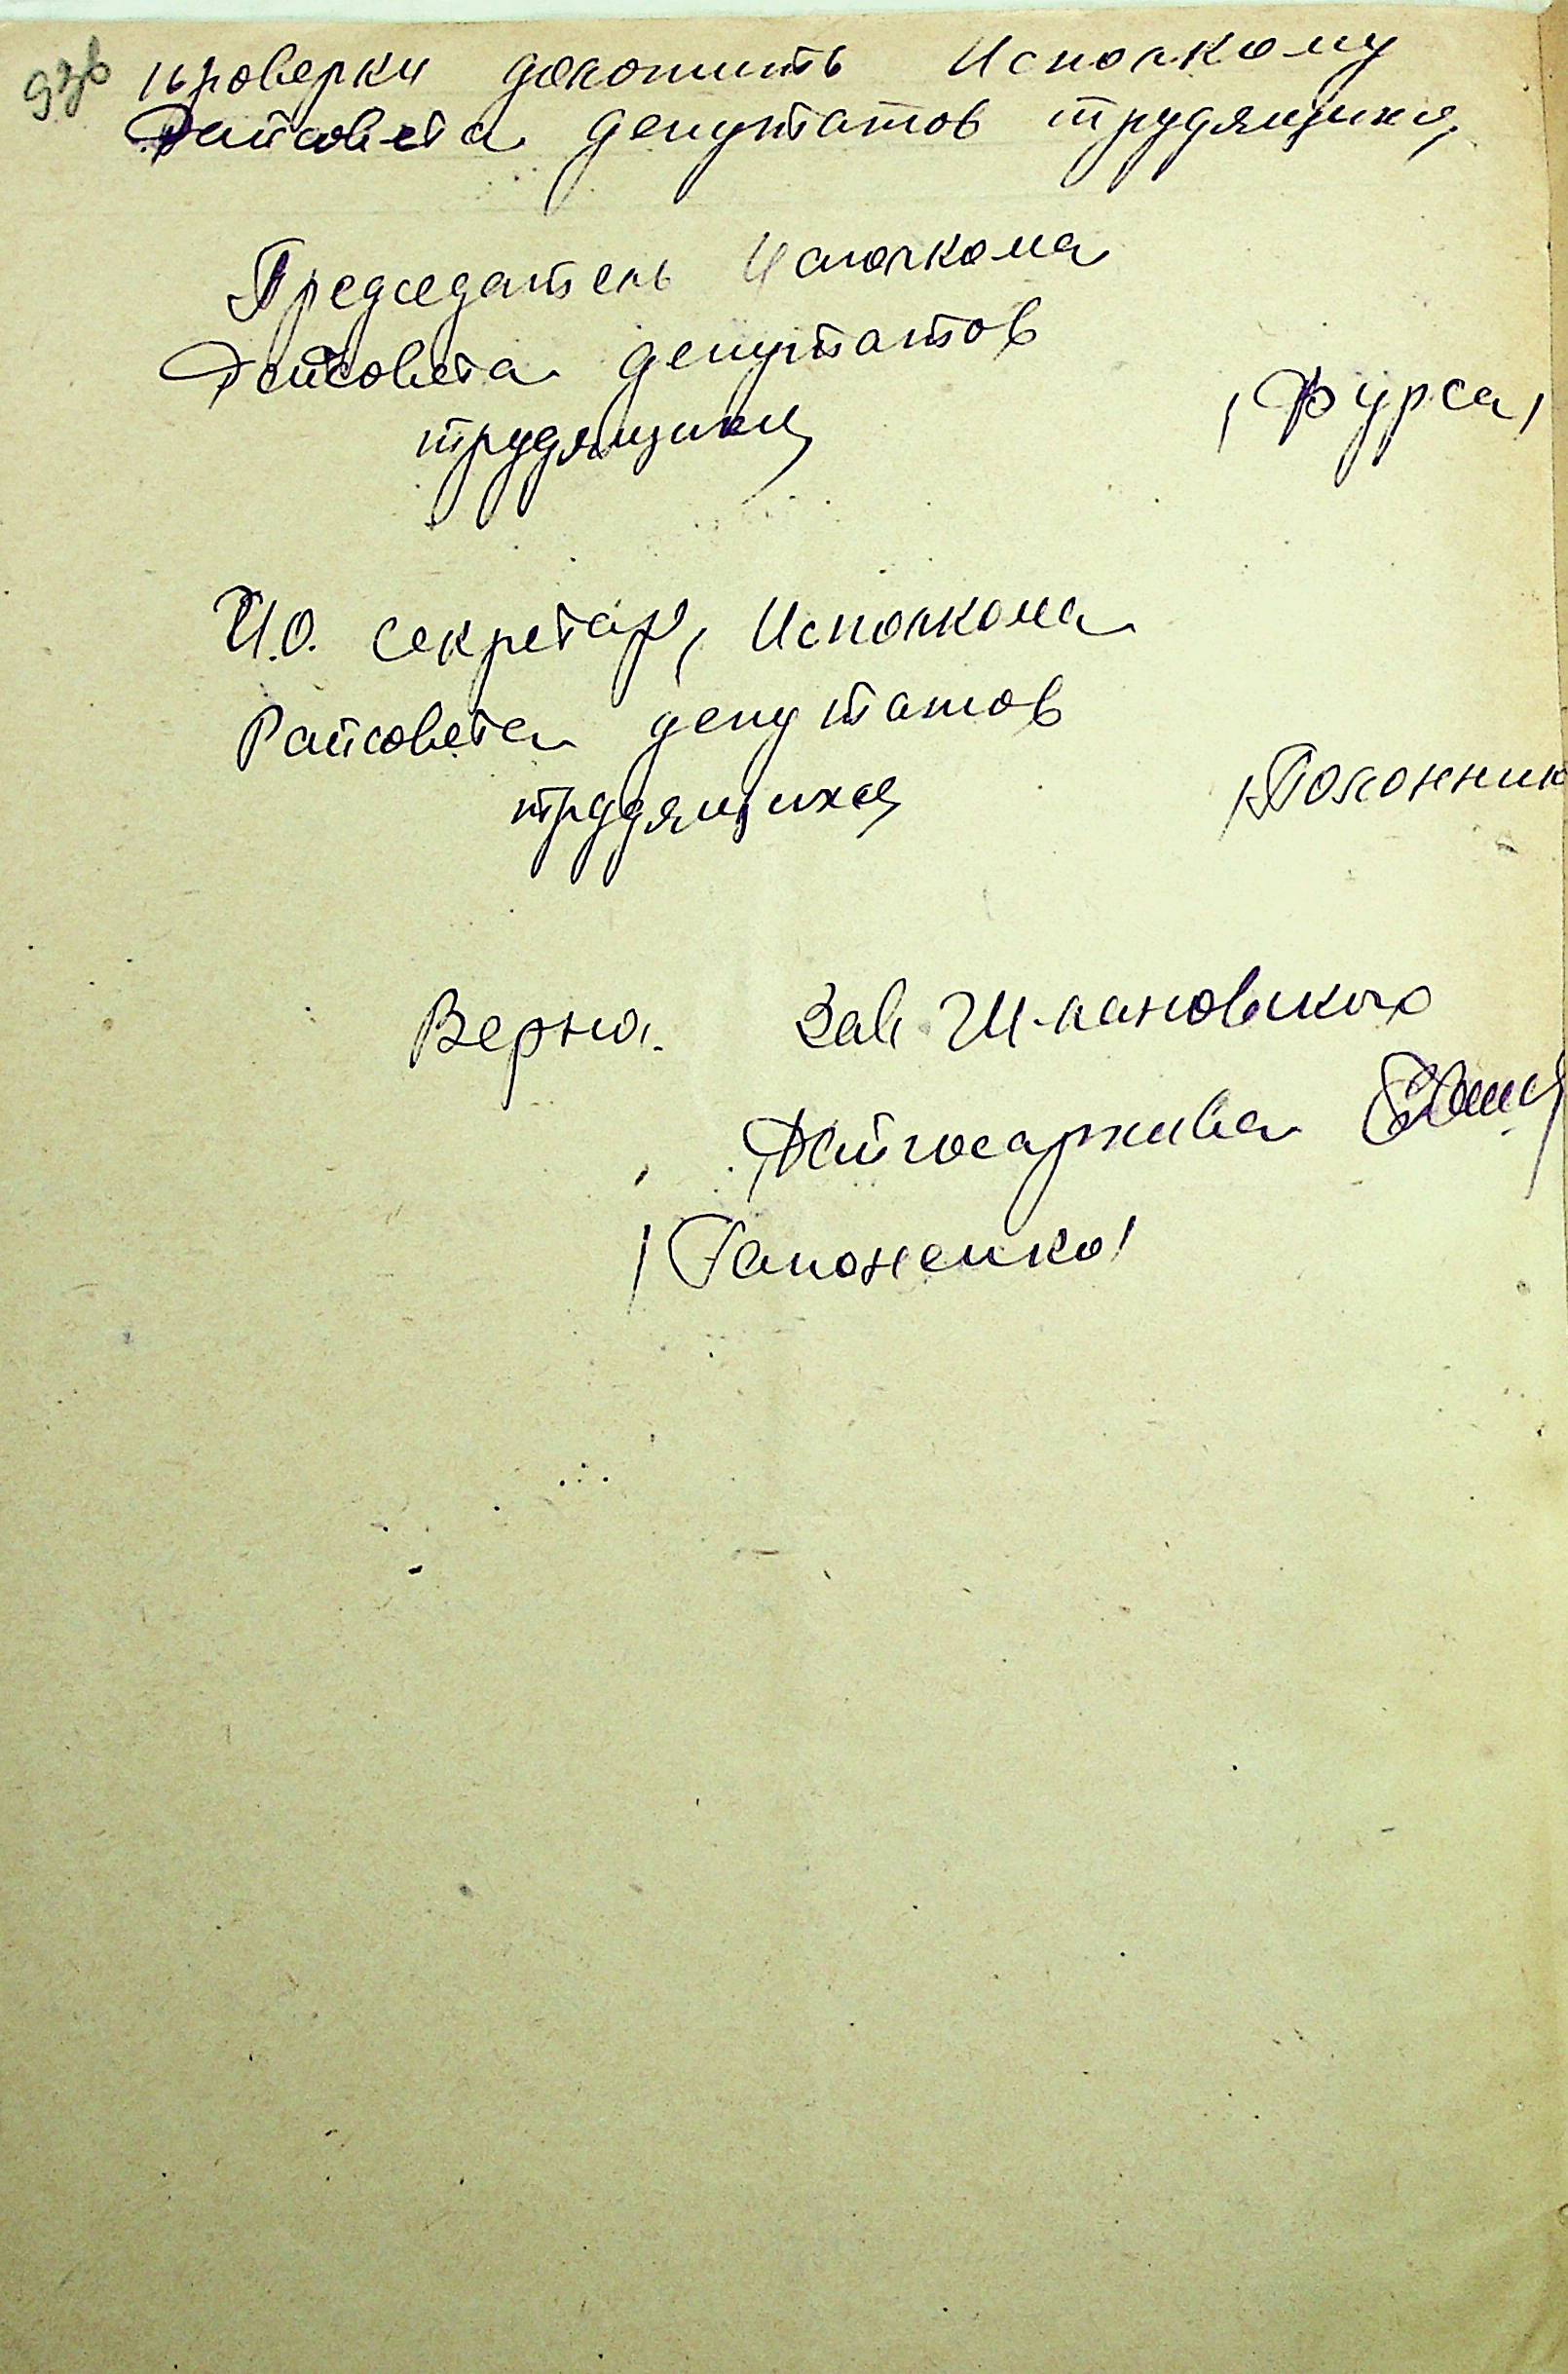 проверки доложить Исполкому
Райсовета депутатов трудящихся
Председатель Исполкома
Райсовета депутатов
трудящихся
/Фурса/
И.О. секретар, Исполкома
Райсовета депутатов
трудящихся
/Полонник
Верно. Зав. Ш-пановского
Райгосархива
/Гапоненко/